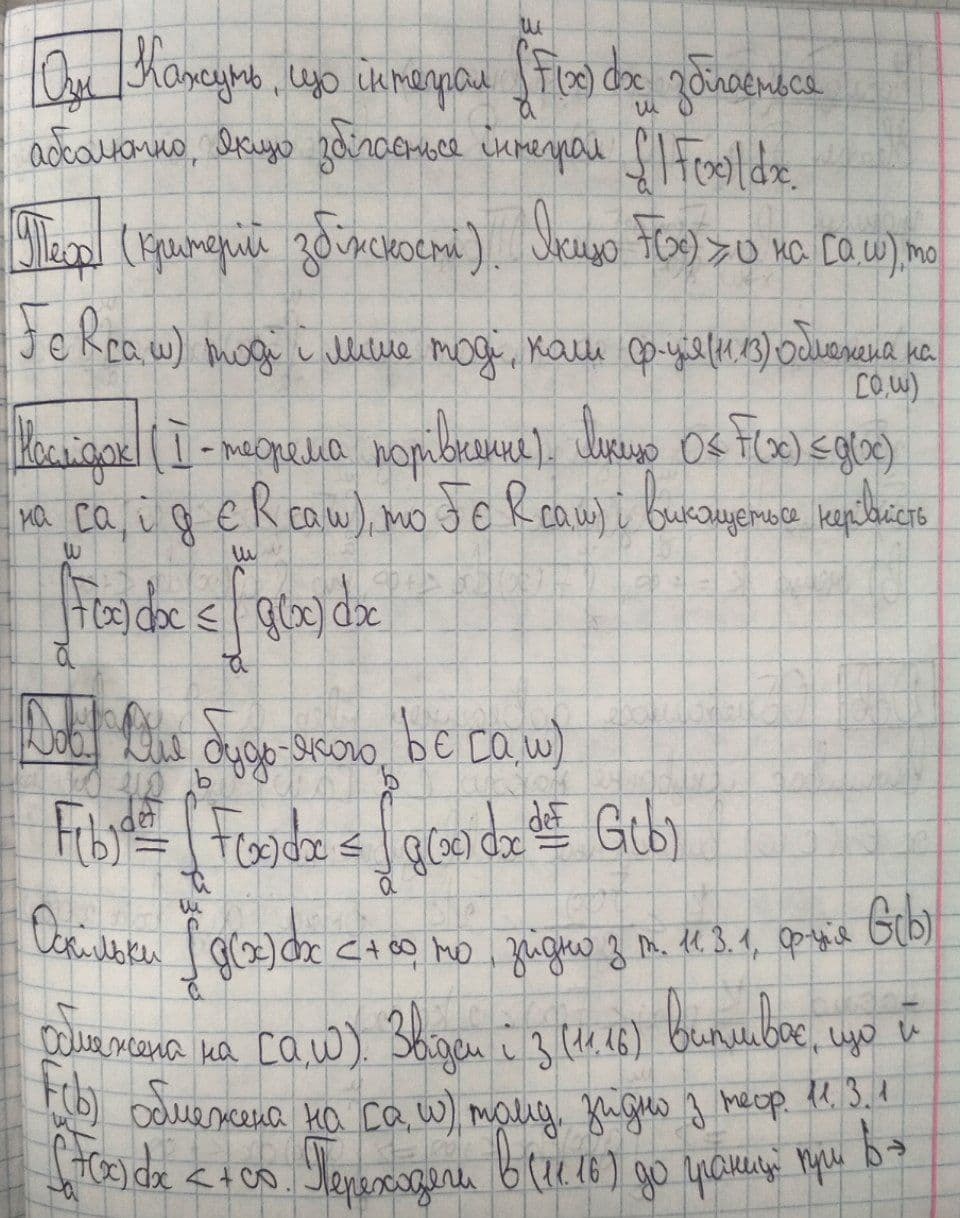 Озн Кажуть, що інтеграл ∫_a^ω f(x) dx збігається
абсолютно, якщо збігається інтеграл ∫_a^ω |f(x)| dx.
Теор. (критерій збіжності). Якщо f(x) ≥ 0 на [a, ω), то
f ∈ R[a, ω) тоді і лише тоді, коли ф-ція (11.13) обмежена на
[a, ω)
Наслідок (I - теорема порівняння). Якщо 0 ≤ f(x) ≤ g(x)
на [a, і g ∈ R[a, ω), то f ∈ R[a, ω) і виконується нерівність
∫_a^ω f(x) dx ≤ ∫_a^ω g(x) dx
Дов. Для будь-якого b ∈ [a, ω)
F(b) =^def ∫_a^b f(x) dx ≤ ∫_a^b g(x) dx =^def G(b)
Оскільки ∫_a^ω g(x) dx < +∞, то, згідно з т. 11.3.1, ф-ція G(b)
обмежена на [a, ω). Звідси і з (11.16) випливає, що й
F(b) обмежена на [a, ω), тому, згідно з теор. 11.3.1
∫_a^ω f(x) dx < +∞. Переходячи в (11.16) до границі при b →